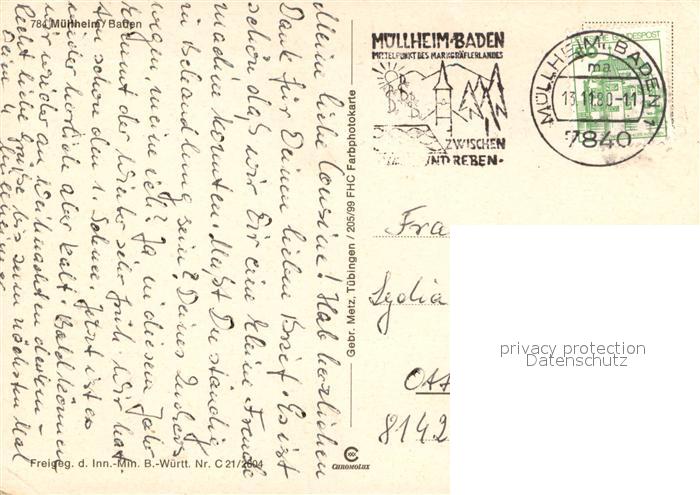 784 Müllheim/Baden
Meine liebe Cousine! Hab herzlichen
Dank für Deinen lieben Brief. Es ist
schön, daß wir Dir eine kleine Freude
machen konnten. Mußt Du ständig
in Behandlung sein? Deines Zuckers
wegen meine ich? Ja, in diesem Jahr
kommt der Winter sehr früh. Wir hat-
ten schon den 1. Schnee. Jetzt ist es
wieder herrlich aber kalt. Bald können
wir wieder an Weihnachten denken
liebe Grüße bis zum nächsten Mal
Freigeg. d. Inn.-Min. B.-Württ. Nr. C 21/2604
Gebr. Metz, Tübingen / 205/99 FHC Farbphotokarte
CHROMOLUX
MÜLLHEIM·BADEN
MITTELPUNKT DES MARKGRÄFLERLANDES
ZWISCHEN
UND REBEN·
MÜLLHEIM, BADEN 1
ma
13.11.80-11
7840
BUNDESPOST
Fra
Lydia
8142
privacy protection
Datenschutz